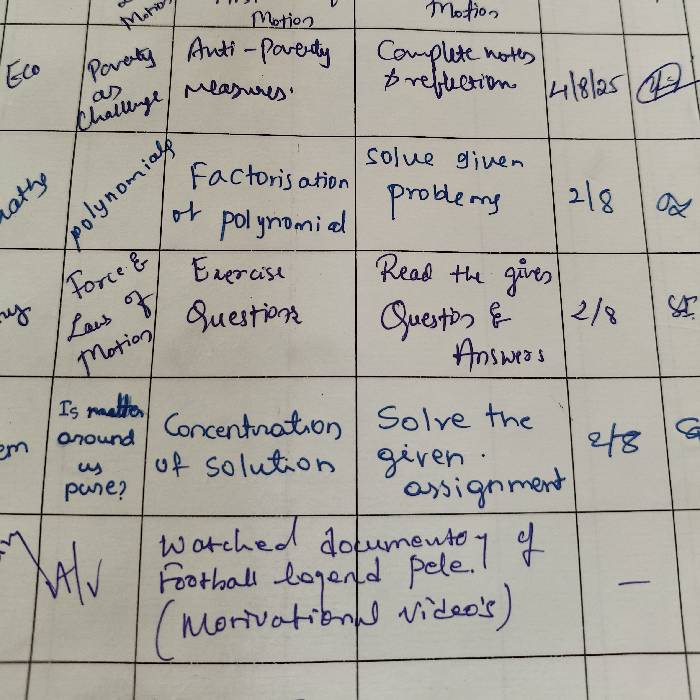 Motion
Motion
Motion
Eco
Poverty
as
Challenge
Anti-Poverty
measures.
Complete notes
& reflection
4/8/25
polynomials
Factorisation
of polynomial
solve given
problems
2/8
Force &
Laws of
Motion
Exercise
Questions
Read the given
Question &
Answers
2/8
em
Is matter
around
us
pure?
Concentration
of solution
Solve the
given.
assignment
2/8
A/V
Watched documentory of
Football legend Pele.
(Motivational Video's)
—